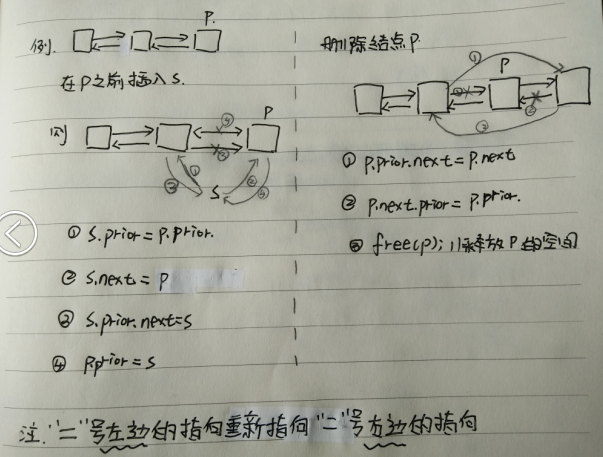 例.
P.
在P之前插入S.
则
P
③
②
③ ① S ② ④
① S.prior = P.prior.
② S.next = P
③ S.prior.next=S
④ P.prior = S
删除结点P
①
P
②
① P.prior.next = P.next
② P.next.prior = P.prior.
③ free(P); //释放P的空间
注."="号左边的指向重新指向"="号右边的指向